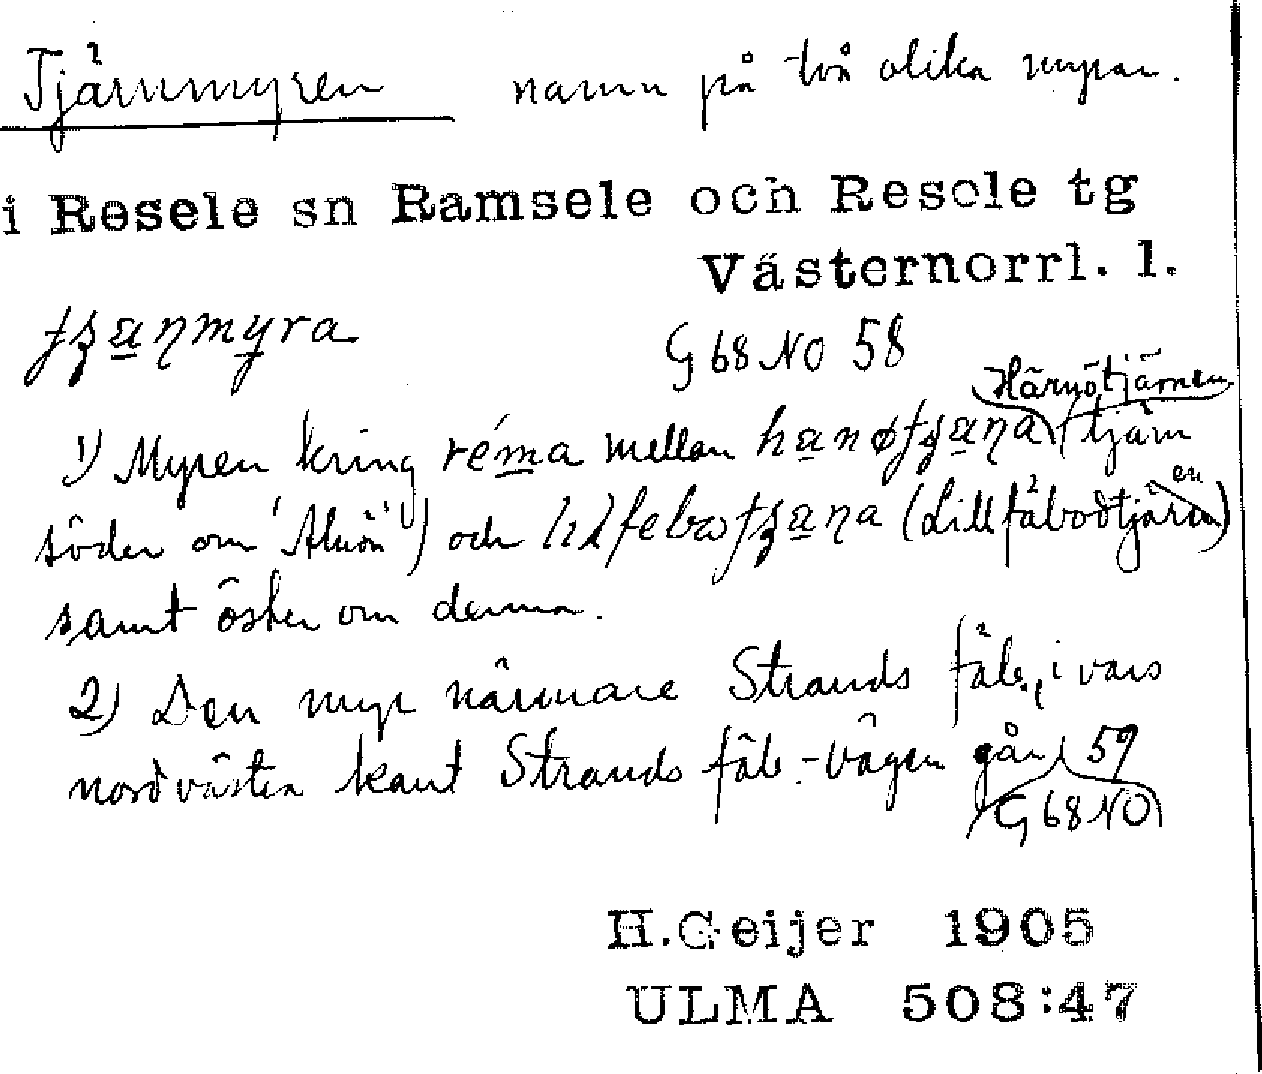 Tjärnmyren namn på två olika myrar.
i Resele sn Ramsele och Resele tg
Västernorrl. l.
G 68 NO 58
Härnötjärnen
1) Myren kring mellan (tjärn
söder om "Alnön") och (Lillfäbodtjärnen)
samt öster om denna.
2) Den myr närmare Strands fäb., i vars
nordvästra kant Strands fäb.-vägen går 59
G 68 NO
H.Geijer 1905
ULMA 508:47